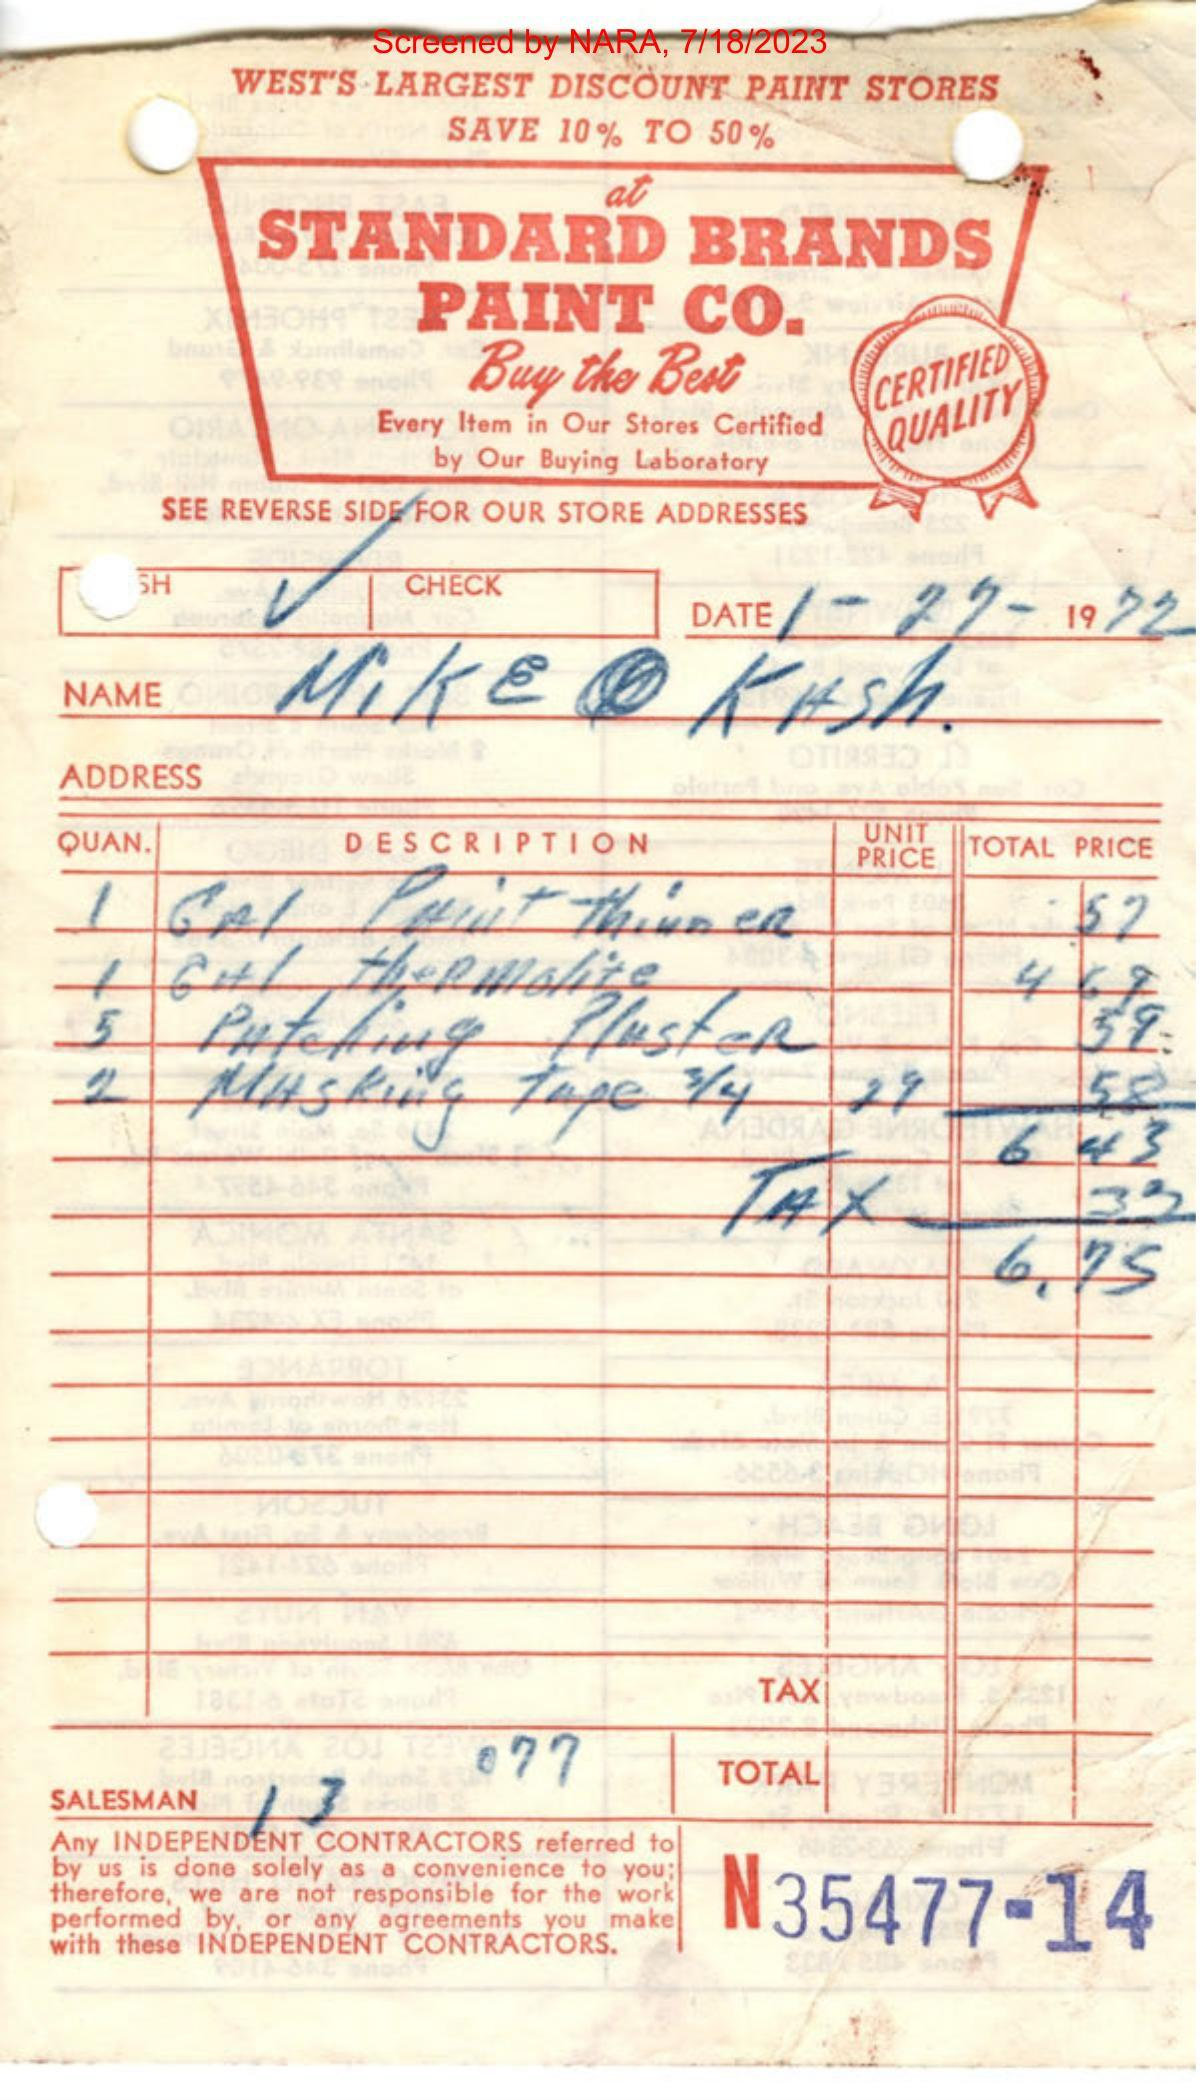 Screened by NARA, 7/18/2023
WEST'S LARGEST DISCOUNT PAINT STORES
SAVE 10% TO 50%
at
STANDARD BRANDS
PAINT CO.
Buy the Best
Every Item in Our Stores Certified
by Our Buying Laboratory
CERTIFIED
QUALITY
SEE REVERSE SIDE FOR OUR STORE ADDRESSES
SH ✓ CHECK
DATE 1-27-1972
NAME MIKE @ KASh.
ADDRESS
QUAN. DESCRIPTION UNIT PRICE TOTAL PRICE
1 GAl Paint thinner 57
1 GAl thermolite 4 69
5 Patching Plaster 59
2 MAsking tape 3/4 29 58
6 43
TAX 32
6.75
TAX
TOTAL
077
SALESMAN 13
Any INDEPENDENT CONTRACTORS referred to
by us is done solely as a convenience to you;
therefore, we are not responsible for the work
performed by, or any agreements you make
with these INDEPENDENT CONTRACTORS.
N35477-14